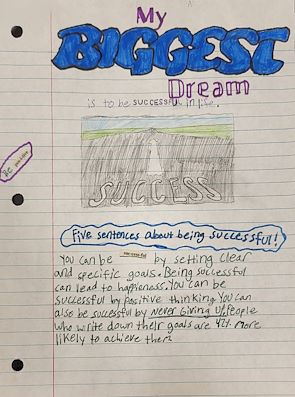 My
BIGGEST
Dream
is to be SUCCESSFUL in life.
SUCCESS
Be
Five sentences about being successful!
You can be successful by setting clear
and specific goals. Being successful
can lead to happioness. You can be
successful by positive thinking. You can
also be successful by never Giving UP. People
who write down their goals are 42% more
likely to achieve them